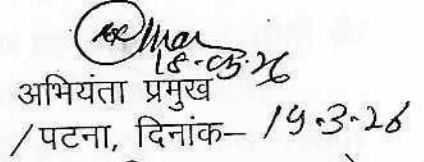 18-03-26
अभियंता प्रमुख
/पटना, दिनांक– 19-3-26